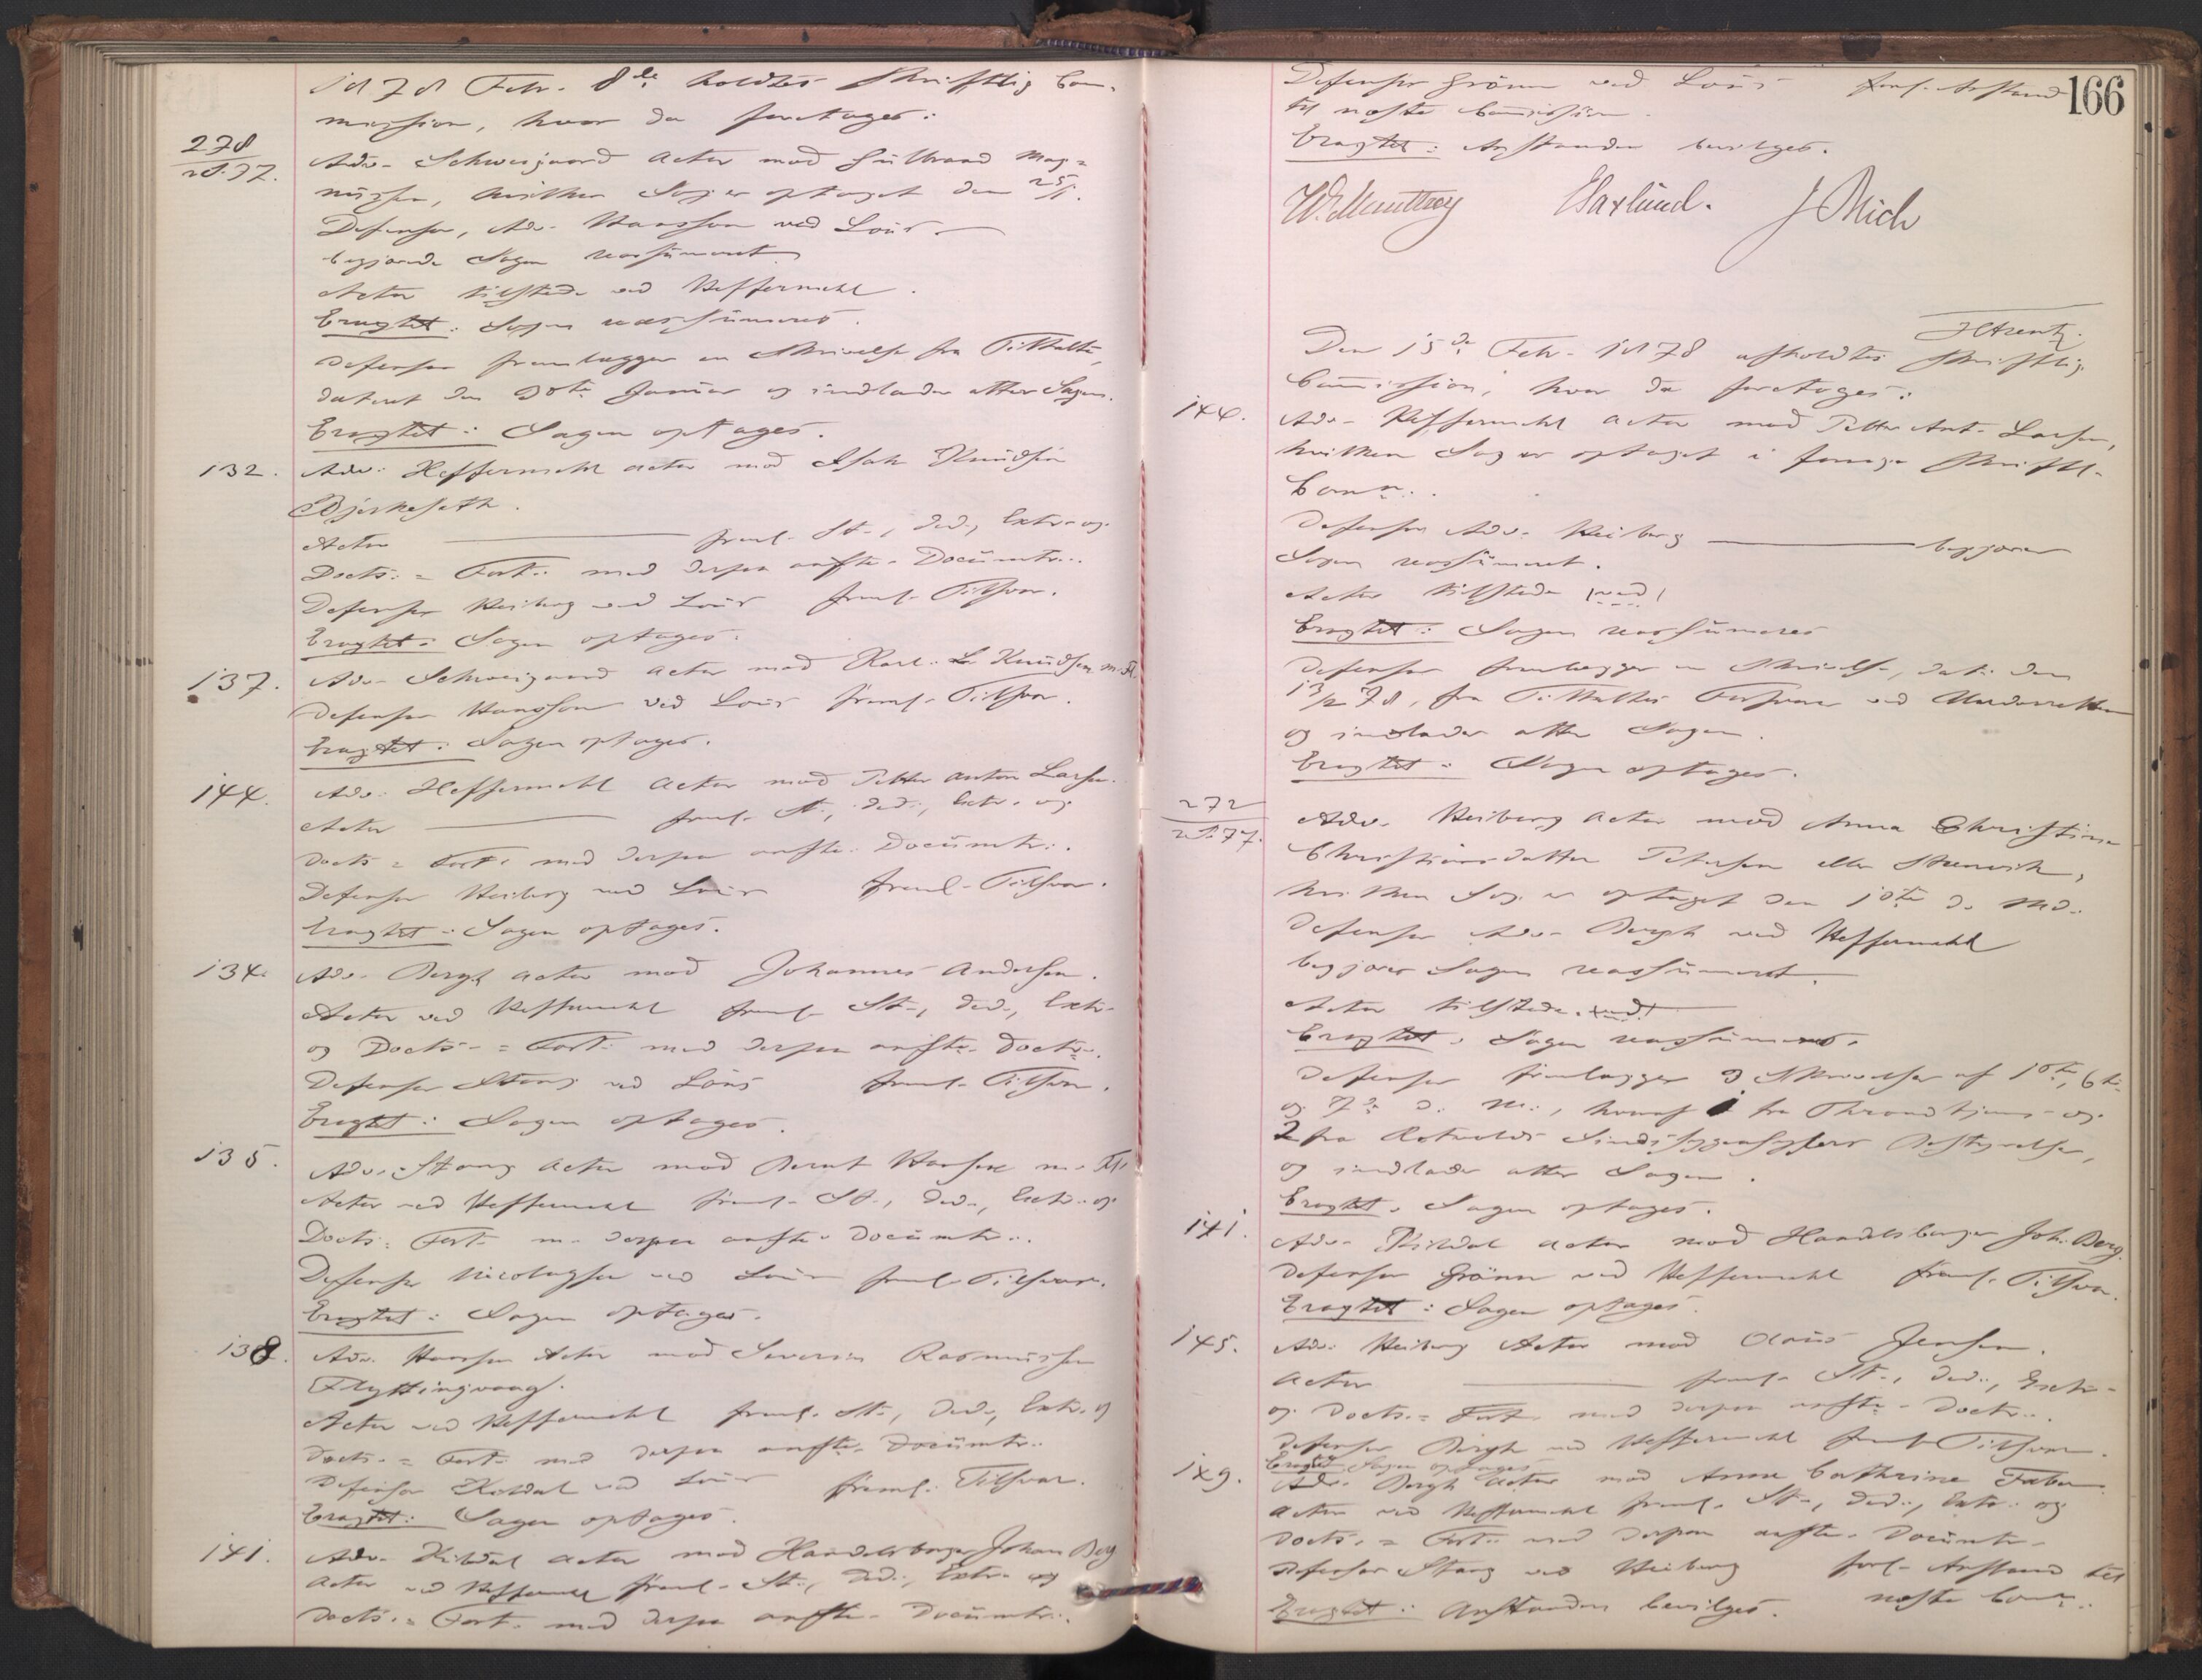 1878 Febr. 8de holdtes Skriftlig Com-
mission, hvor da foretoges:
278
2 S. 77.
Adv. Schweigaard Actor mod Gulbrand Mag-
nussen, hvilken Sag er optaget den 25/1.
Defensor, Adv. Hansson ved Lous
begjærede Sagen reassumeret
Actor tilstede ved Heffermehl.
Eragtet: Sagen reassumeres.
Defensor fremlægger en Skrivelse fra Tiltalte,
dateret den 30te Januar og indlader atter Sagen.
Eragtet: Sagen optages.
132.
Adv. Heffermehl Actor mod Isak Knudsen
Bjerkesæth.
Actor freml. St., Ded., Extr. og
Docts. = Fort. med derpaa anfte. Documtr.
Defensor Heiberg ved Lous freml. Tilsvar.
Eragtet: Sagen optages.
137.
Adv. Schweigaard Actor mod Karl Knudsen m. Fl.
Defensor Hansson ved Lous freml. Tilsvar.
Eragtet: Sagen optages.
144.
Adv. Heffermehl Actor mod Petter Anton Larsen.
Actor freml. St., Ded., Extr. og
Docts = Fort. med derpaa anfte. Documtr.
Defensor Heiberg ved Lous freml. Tilsvar.
Eragtet: Sagen optages.
134.
Adv. Bergh Actor mod Johannes Andersen.
Actor ved Heffermehl freml. St., Ded., Extr.
og Docts. = Fort. med derpaa anfte. Doctr.
Defensor Stang ved Lous freml. Tilsvar.
Eragtet: Sagen optages.
135.
Adv. Stang Actor mod Bernt Hansen m. Fl.
Actor ved Heffermehl freml. St., Ded., Extr. og
Docts. = Fort. m. derpaa anfte. Documtr.
Defensor Nicolaysen ved Lous freml. Tilsvar.
Eragtet: Sagen optages.
138.
Adv. Hansson Actor mod Severin Rasmussen
Flyttingvaag.
Actor ved Heffermehl freml. St., Ded., Extr. og
Docts. = Fort. med derpaa anfte. Documtr.
Defensor Kildal ved Lous freml. Tilsvar.
Eragtet: Sagen optages.
141.
Adv. Kildal Actor mod Handelsborger Johan Berg
Actor ved Heffermehl freml. St., Ded., Extr. og
Docts. = Fort. med derpaa anfte. Documtr.
166
Defensor Grönn ved Lous forl. Anstand
til næste Commission.
Eragtet: Anstanden bevilges.
J Mich
Den 15de Febr. 1878 afholdtes Skriftlig
Commission, hvor da foretoges:
144.
Adv. Heffermehl Actor mod Petter Ant. Larsen,
hvilken Sag er optaget i forrige Skriftl.
Comn.
Defensor Adv. Heiberg begjærer
Sagen reassumeret.
Actor tilstede (ved)
Eragtet: Sagen reassumeres
Defensor fremlægger en Skrivelse, dat. den
13/2 78, fra Tiltaltes Forsvarer ved Underretten
og indlader atter Sagen.
Eragtet: Sagen optages.
272
2 S. 77.
Adv. Heiberg Actor mod Anna Christine
Christiansdatter Petersen eller Stenvik,
hvilken Sag er optaget den 10te d. Md.
Defensor Adv. Bergh ved Heffermehl
begjærer Sagen reassumeret.
Actor tilstede. (ved)
Eragtet: Sagen reassumeres.
Defensor fremlægger 3 Skrivelser af 1ste, 6te
og 7de d. M., hvoraf 1 fra Throndhjems og
2 fra Rotvolds Sindssygeasylers Bestyrelse,
og indlader atter Sagen.
Eragtet: Sagen optages.
141.
Adv. Kildal Actor mod Handelsborger Joh. Berg.
Defensor Grönn ved Heffermehl freml. Tilsvar.
Eragtet: Sagen optages.
145.
Adv. Heiberg Actor mod Claus Jensen.
Actor freml. St., Ded., Extr.
og Docts. = Fort. med derpaa anfte. Doctr.
Defensor Bergh ved Heffermehl freml. Tilsvar.
Eragtet: Sagen optages
149.
Adv. Bergh Actor mod Anne Cathrine Faber
Actor ved Heffermehl freml. St., Ded., Extr. og
Docts. = Fort. med derpaa anfte. Documtr.
Defensor Stang ved Heiberg forl. Anstand til
næste Comn.
Eragtet: Anstanden bevilges.